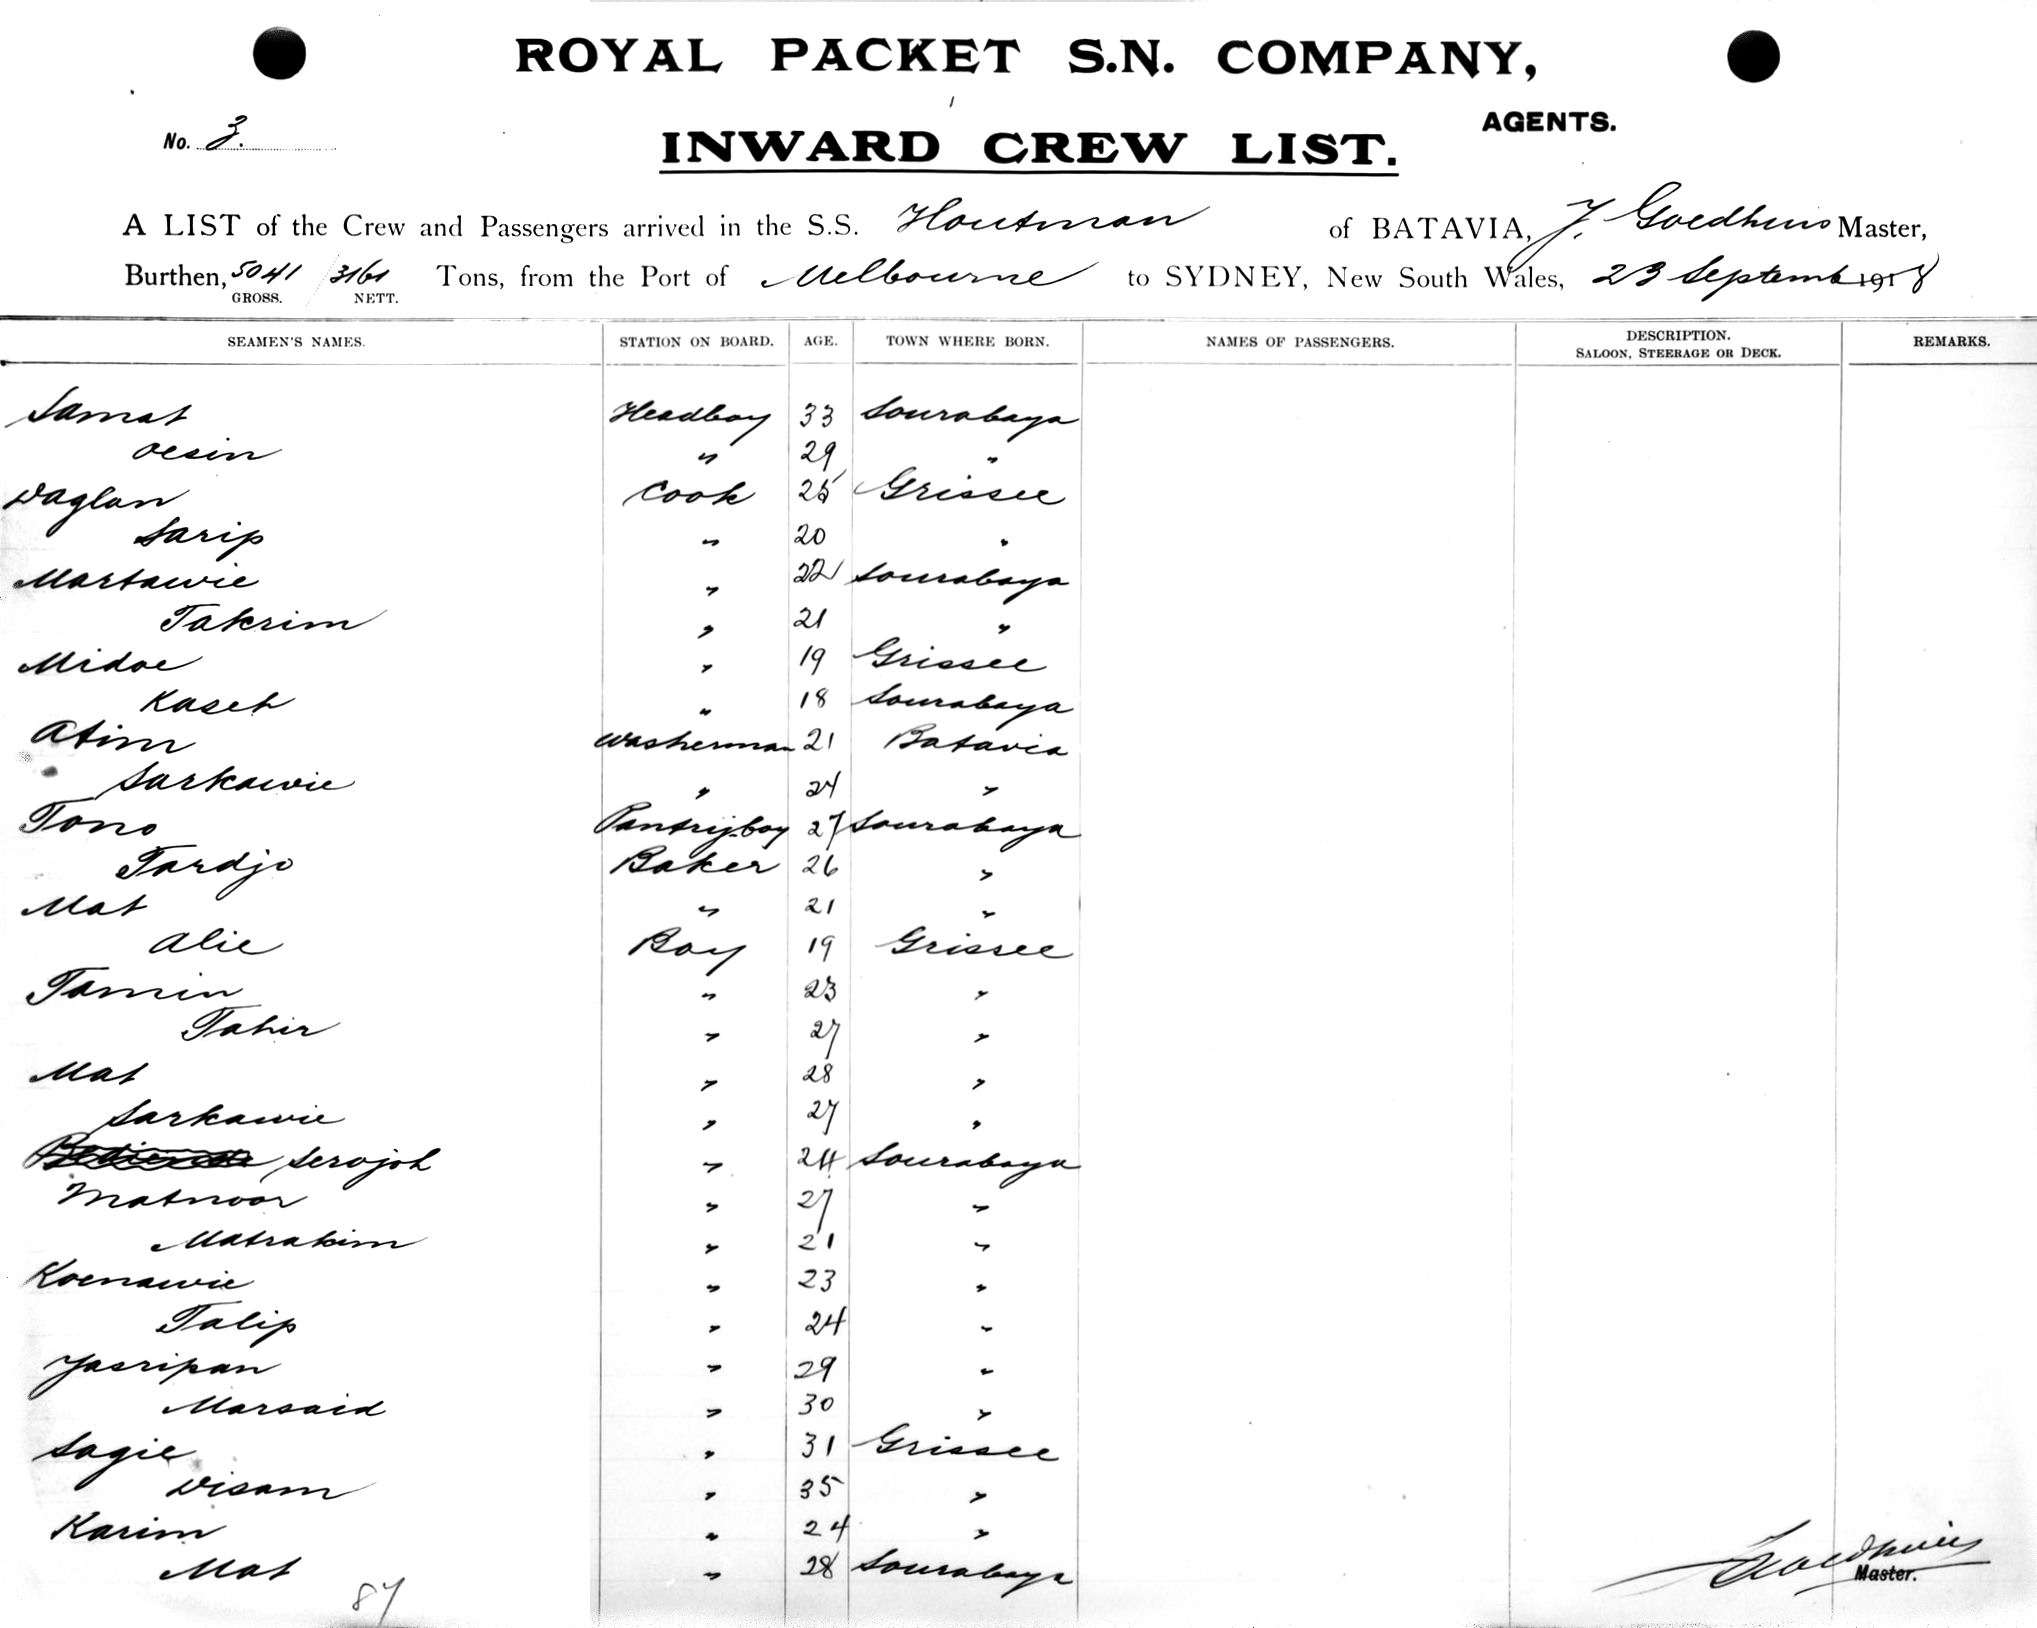 ROYAL PACKET S.N. COMPANY,
AGENTS.
No. 3.
INWARD CREW LIST.
A LIST of the Crew and Passengers arrived in the S.S. Houtman of BATAVIA, J. Goedhuis Master,
Burthen, 5041 / 3161 Tons, from the Port of Melbourne to SYDNEY, New South Wales, 23 Septemb 1918
GROSS. NETT.
SEAMEN'S NAMES. STATION ON BOARD. AGE. TOWN WHERE BORN. NAMES OF PASSENGERS. DESCRIPTION. SALOON, STEERAGE OR DECK. REMARKS.
Samat Headboy 33 Sourabaya
Oesin " 29 "
Waglan Cook 25 Grissee
Sarip " 20 "
Martawie " 22 Sourabaya
Takrim " 21 "
Midoe " 19 Grissee
Kaseh " 18 Sourabaya
Atim Washerman 21 Batavia
Sarkawie " 24 "
Tono Pantrijboy 27 Sourabaya
Tardjo Baker 26 "
Mat " 21 "
Alie Boy 19 Grissee
Tamin " 23 "
Tahir " 27 "
Mat " 28 "
Sarkawie " 27 "
Serojoh " 24 Sourabaya
Matnoor " 27 "
Matrakim " 21 "
Koenawie " 23 "
Talip " 24 "
Jasripan " 29 "
Marsaid " 30 "
Sagie " 31 Grissee
Wisam " 35 "
Karim " 24 "
Mat " 28 Sourabaya
87
Goedhuis
Master.